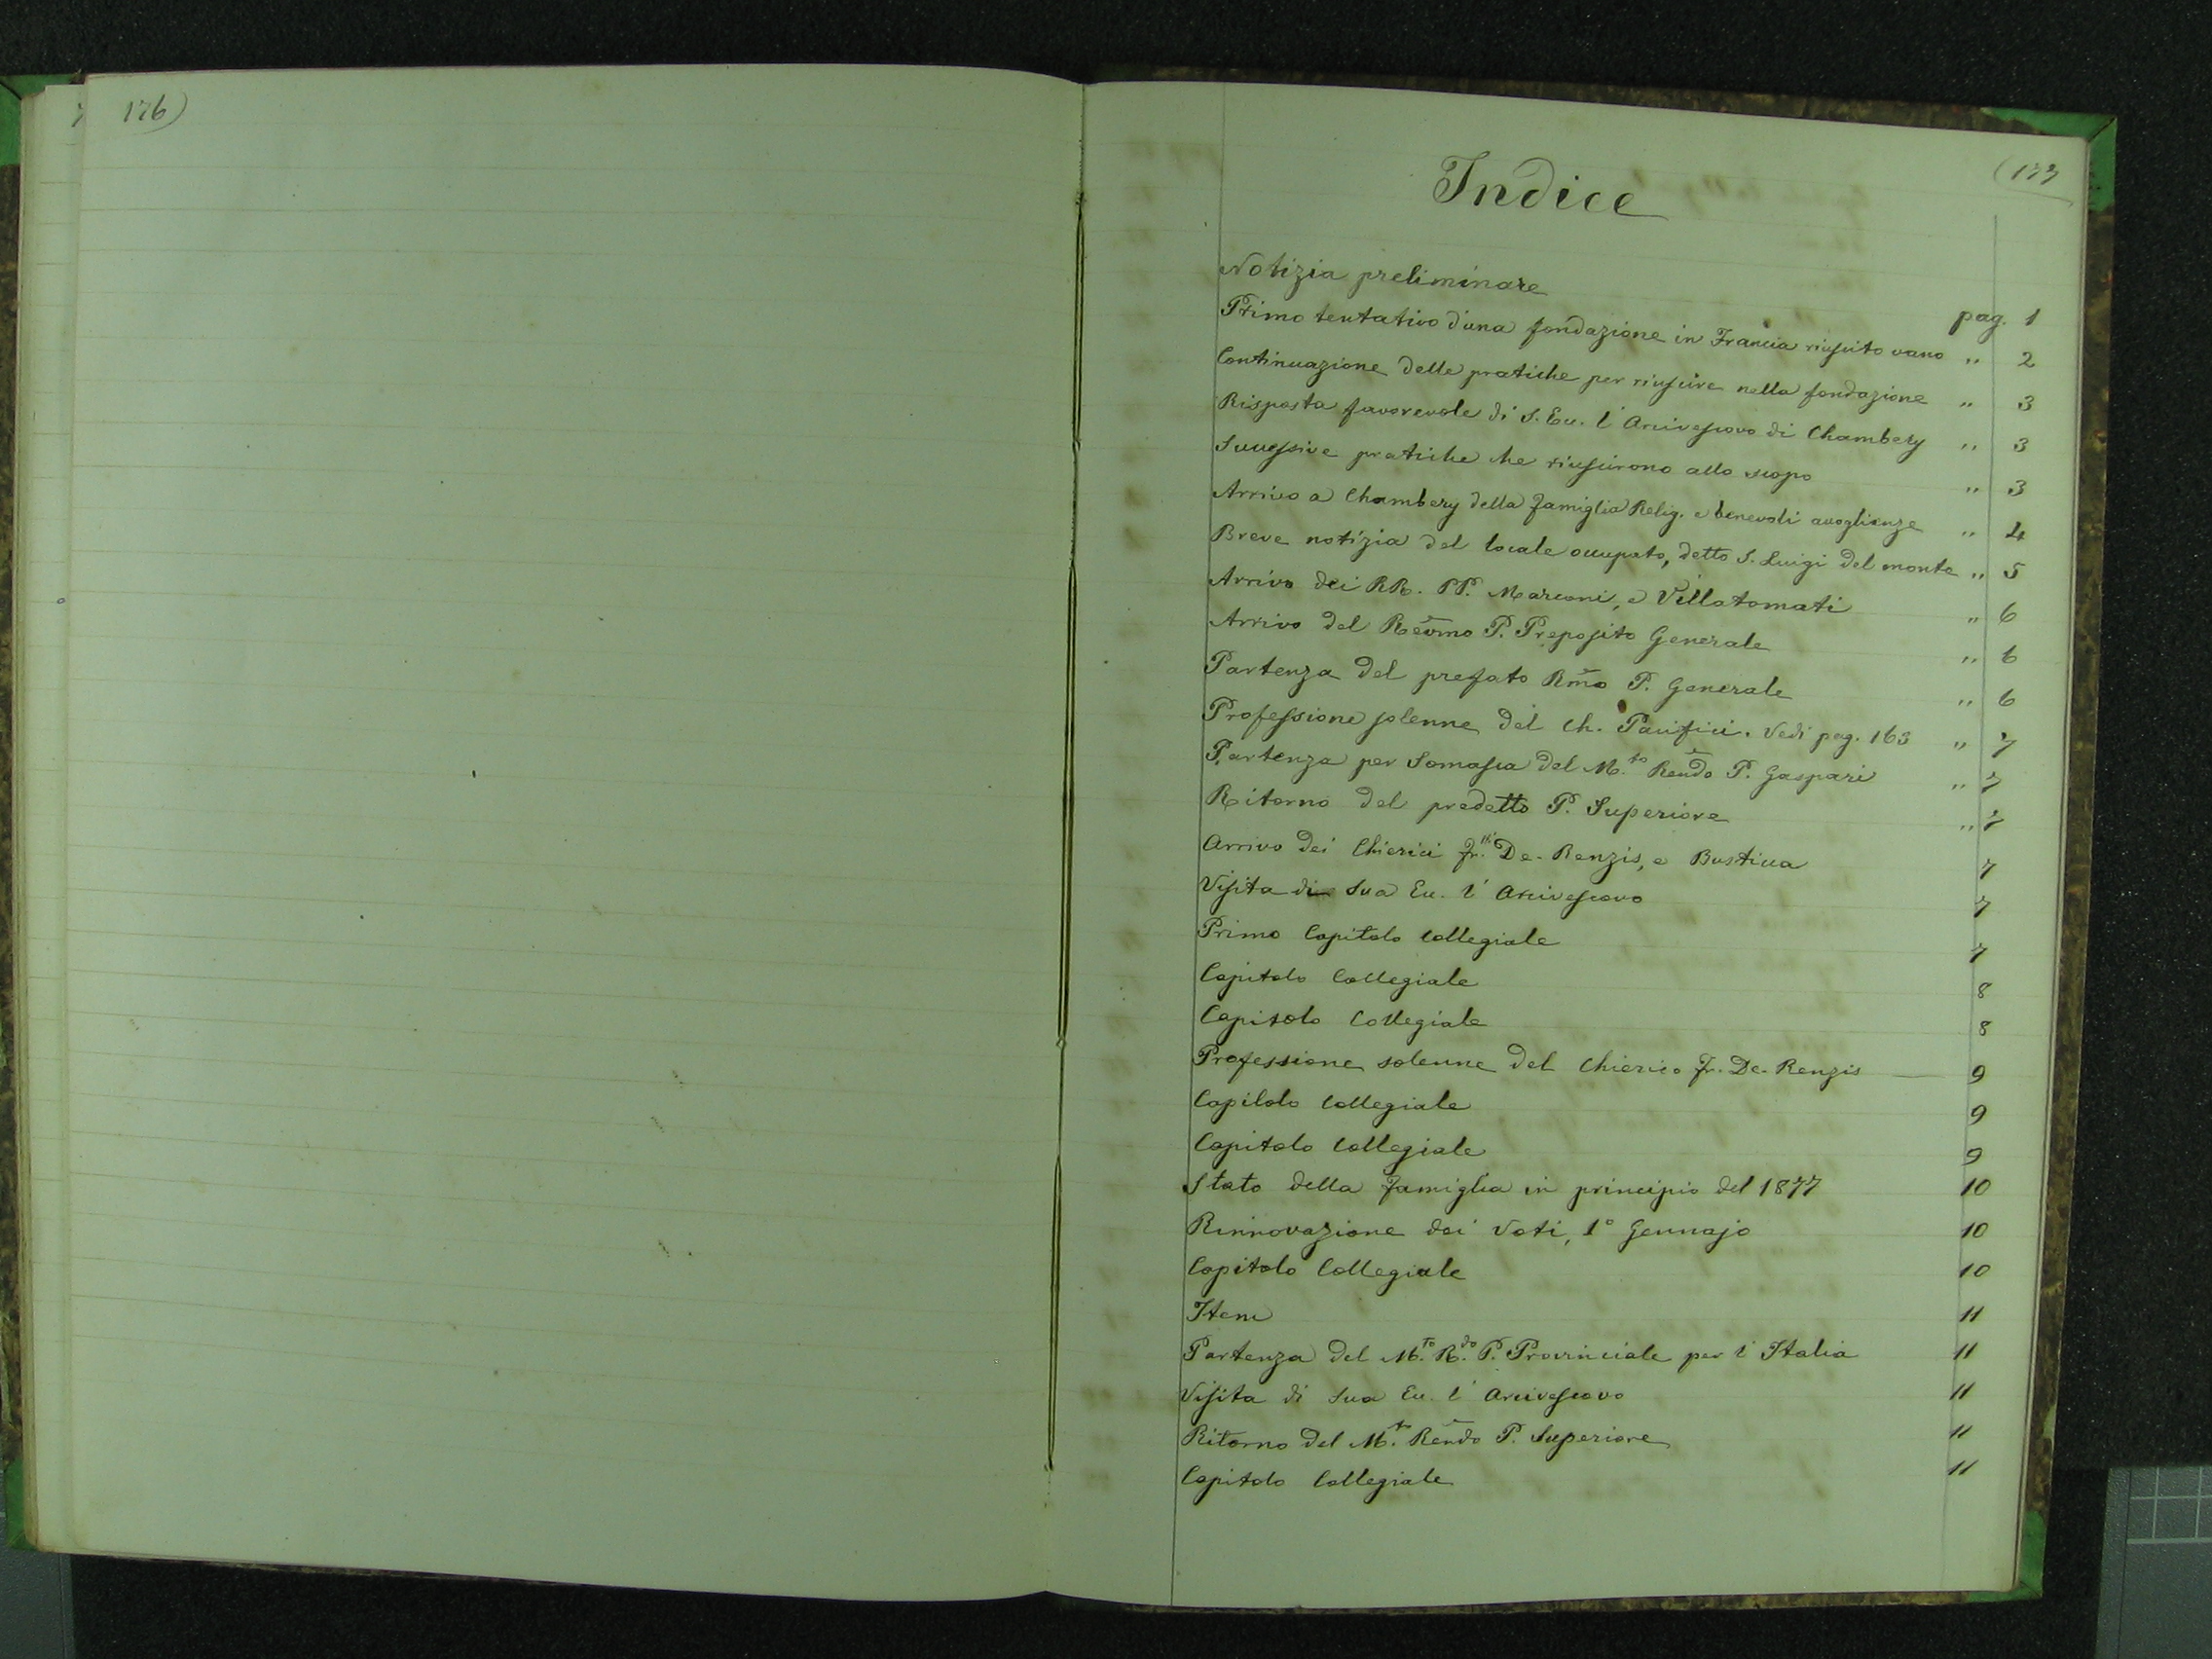 176)
(177
Indice
Notizia preliminare pag. 1
Primo tentativo d'una fondazione in Francia riuscito vano " 2
Continuazione delle pratiche per riuscire nella fondazione " 3
Risposta favorevole di S. Ecc. l'Arcivescovo di Chambery " 3
Successive pratiche che riuscirono allo scopo " 3
Arrivo a Chambery della famiglia Relig. e benevoli accoglienze " 4
Breve notizia del locale occupato, detto S. Luigi del monte " 5
Arrivo dei RR. PP. Marconi, e Villatomati " 6
Arrivo del Revmo P. Preposito Generale " 6
Partenza del prefato Rmo P. Generale " 6
Professione solenne del Ch. Pacifici. Vedi pag. 163 " 7
Partenza per Somasca del M.to Rendo P. Gaspari " 7
Ritorno del predetto P. Superiore " 7
Arrivo dei Chierici Fr.lli De-Renzis, e Busticca 7
Visita di Sua Ecc. l'Arcivescovo 7
Primo Capitolo Collegiale 7
Capitolo Collegiale 8
Capitolo Collegiale 8
Professione solenne del Chierico Fr. De-Renzis — 9
Capitolo Collegiale 9
Capitolo Collegiale 9
Stato della famiglia in principio del 1877 10
Rinnovazione dei Voti, 1° Gennajo 10
Capitolo Collegiale 10
Item 11
Partenza del M.to R.do P. Provinciale per l'Italia 11
Visita di Sua Ecc. l'Arcivescovo 11
Ritorno del M.to Rendo P. Superiore 11
Capitolo Collegiale 11